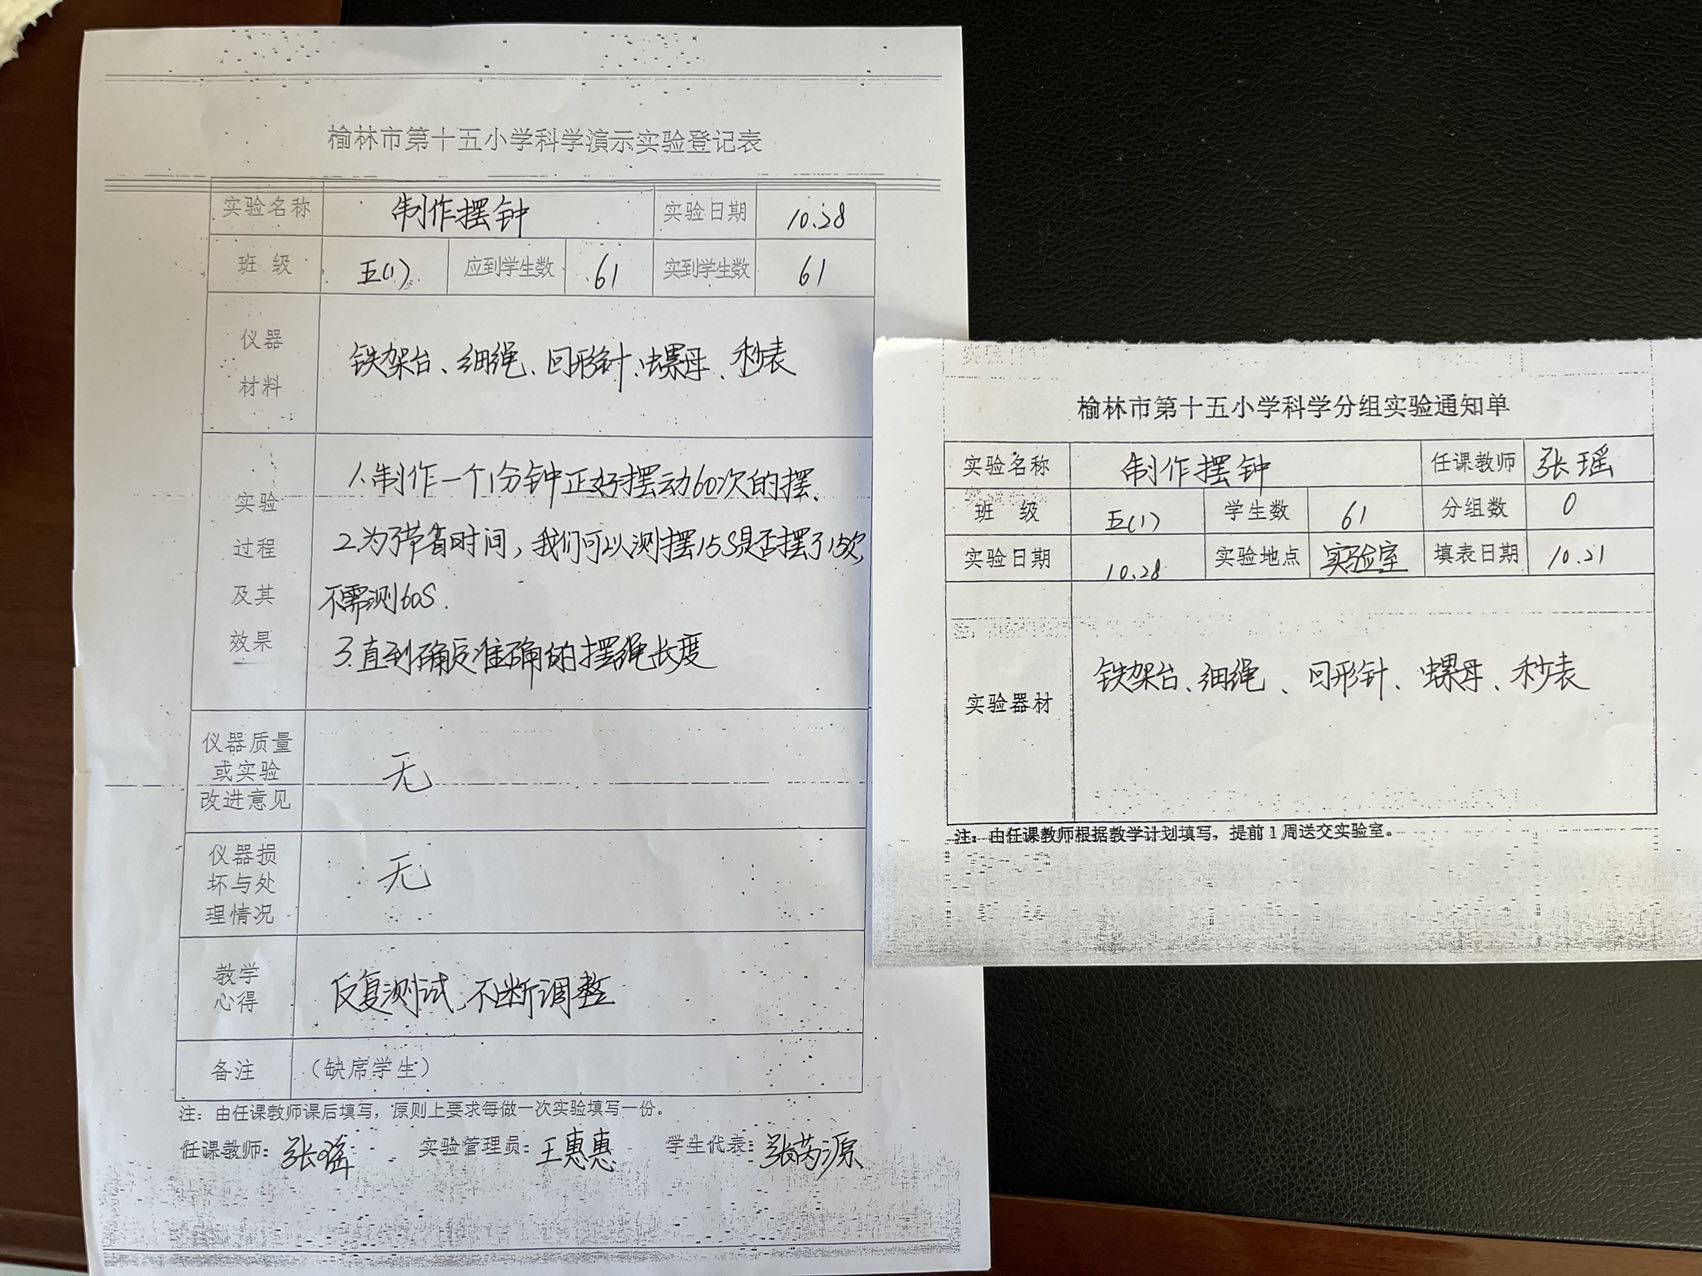 榆林市第十五小学科学演示实验登记表
实验名称 制作摆钟 实验日期 10.28
班 级 五(1) 应到学生数 61 实到学生数 61
仪器
材料
铁架台、细绳、回形针、螺母、秒表
实验
过程
及其
效果
1.制作一个1分钟正好摆动60次的摆.
2.为了节省时间,我们可以测摆15S是否摆了15次,
不需测60S.
3.直到确反准确的摆绳长度
仪器质量
或实验
改进意见
无
仪器损
坏与处
理情况
无
教学
心得
反复测试、不断调整
备注 (缺席学生)
注:由任课教师课后填写,原则上要求每做一次实验填写一份。
任课教师:张瑶 实验管理员:王惠惠 学生代表:张芮源
榆林市第十五小学科学分组实验通知单
实验名称 制作摆钟 任课教师 张瑶
班 级 五(1) 学生数 61 分组数 0
实验日期 10.28 实验地点 实验室 填表日期 10.21
实验器材 铁架台、细绳、回形针、螺母、秒表
注:由任课教师根据教学计划填写,提前1周送交实验室。